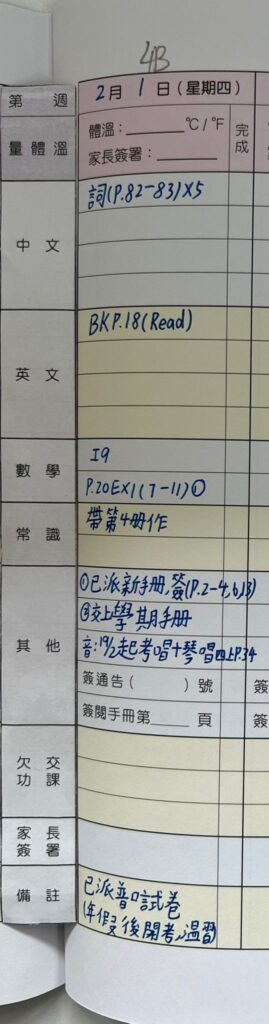 4B
第 週 2月 1 日 (星期四)
量體溫 體溫：______ °C / °F 完成
家長簽署：______
中文 詞(P.82-83)X5
英文 BKP.18(Read)
數學 I9
P.20EX1(7-11)①
常識 帶第4冊作
其他 ①已派新手冊,簽(P.2-4,6,13)
②交上學期手冊
音:19/2起考唱+琴唱四上P.34
簽通告( )號 簽
簽閱手冊第____頁 簽
欠交功課
家長簽署
備註 已派普口試卷
(年假後開考,溫習)